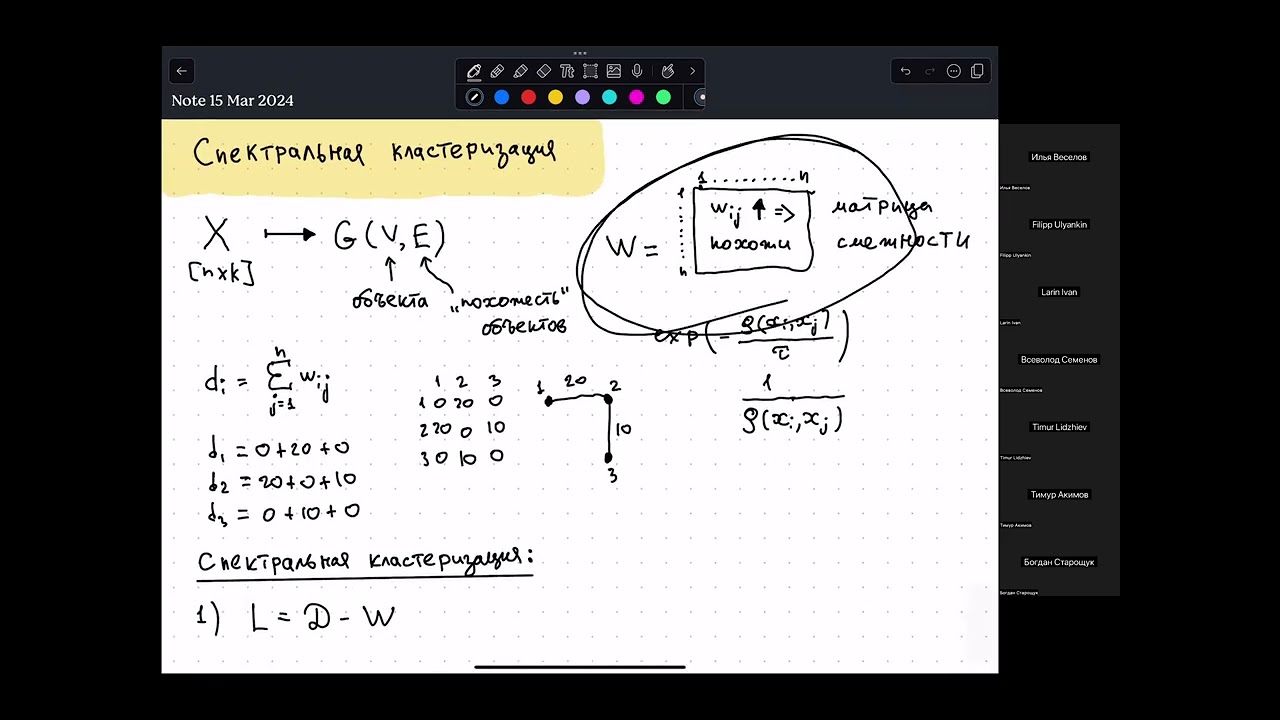 Note 15 Mar 2024
Tt
Спектральная кластеризация
X ⟼ G(V, E)
[n×k]
объекта
"похожесть"
объектов
1 ......... n
1
W =
wij ↑ =>
похожи
n
матрица
смежности
exp(- ρ(xi, xj) / τ)
1 / ρ(xi, xj)
di = Σ wij
n
j=1
d1 = 0+20+0
d2 = 20+0+10
d3 = 0+10+0
1 2 3
1 0 20 0
2 20 0 10
3 0 10 0
1 20 2
10
3
Спектральная кластеризация:
1) L = D - W
Илья Веселов
Илья Веселов
Filipp Ulyankin
Filipp Ulyankin
Larin Ivan
Larin Ivan
Всеволод Семенов
Всеволод Семенов
Timur Lidzhiev
Timur Lidzhiev
Тимур Акимов
Тимур Акимов
Богдан Старощук
Богдан Старощук